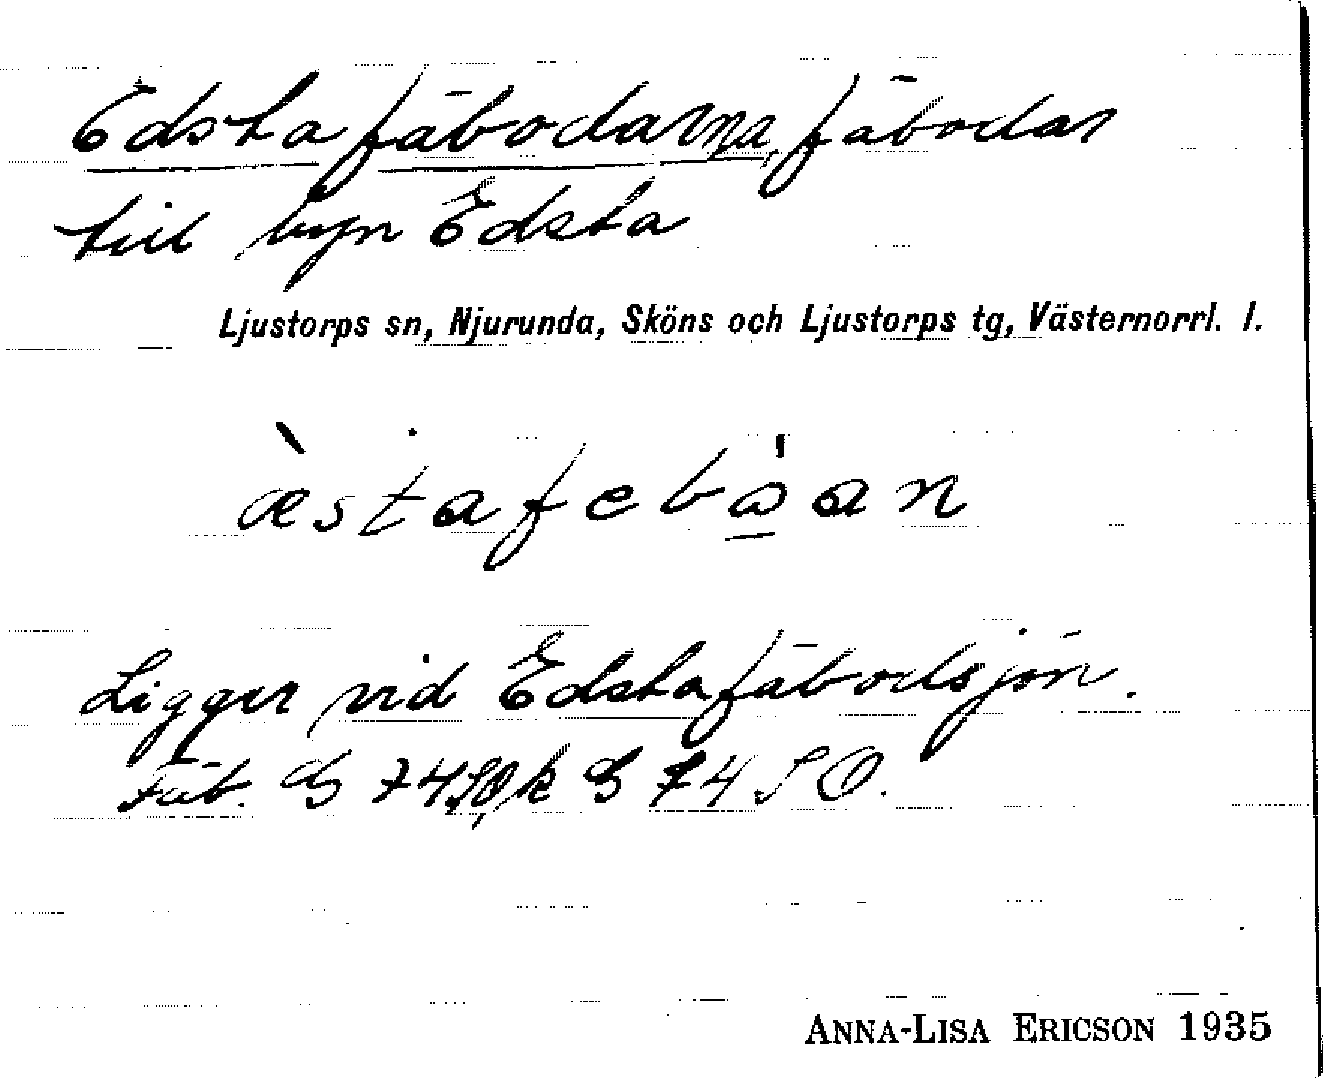 Edsta fäbodarna, fäbodar
till byn Edsta
Ljustorps sn, Njurunda, Sköns och Ljustorps tg, Västernorrl. l.
æ̀stafebå̱an
Ligger vid Edstafäbodsjön.
Fäb. G 74 SO, k G 74 SO.
ANNA-LISA ERICSON 1935